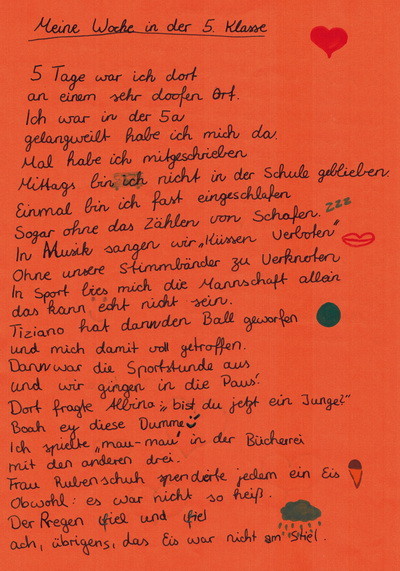 Meine Woche in der 5. Klasse
5 Tage war ich dort
an einem sehr doofen Ort.
Ich war in der 5a
gelangweilt habe ich mich da.
Mal habe ich mitgeschrieben
Mittags bin ich nicht in der Schule geblieben.
Einmal bin ich fast eingeschlafen
Sogar ohne das Zählen von Schafen. zzz
In Musik sangen wir „Küssen Verboten"
Ohne unsere Stimmbänder zu Verknoten
In Sport lies mich die Mannschaft allein
das kann echt nicht sein.
Tiziano hat dann den Ball geworfen
und mich damit voll getroffen.
Dann war die Sportstunde aus
und wir gingen in die Paus'.
Dort fragte Albina: „bist du jetzt ein Junge?"
Boah ey diese Dumme
Ich spielte „mau-mau" in der Bücherei
mit den anderen drei.
Frau Rubenschuh spendierte jedem ein Eis
Obwohl: es war nicht so heiß.
Der Regen fiel und fiel
ach, übrigens, das Eis war nicht am Stiel.